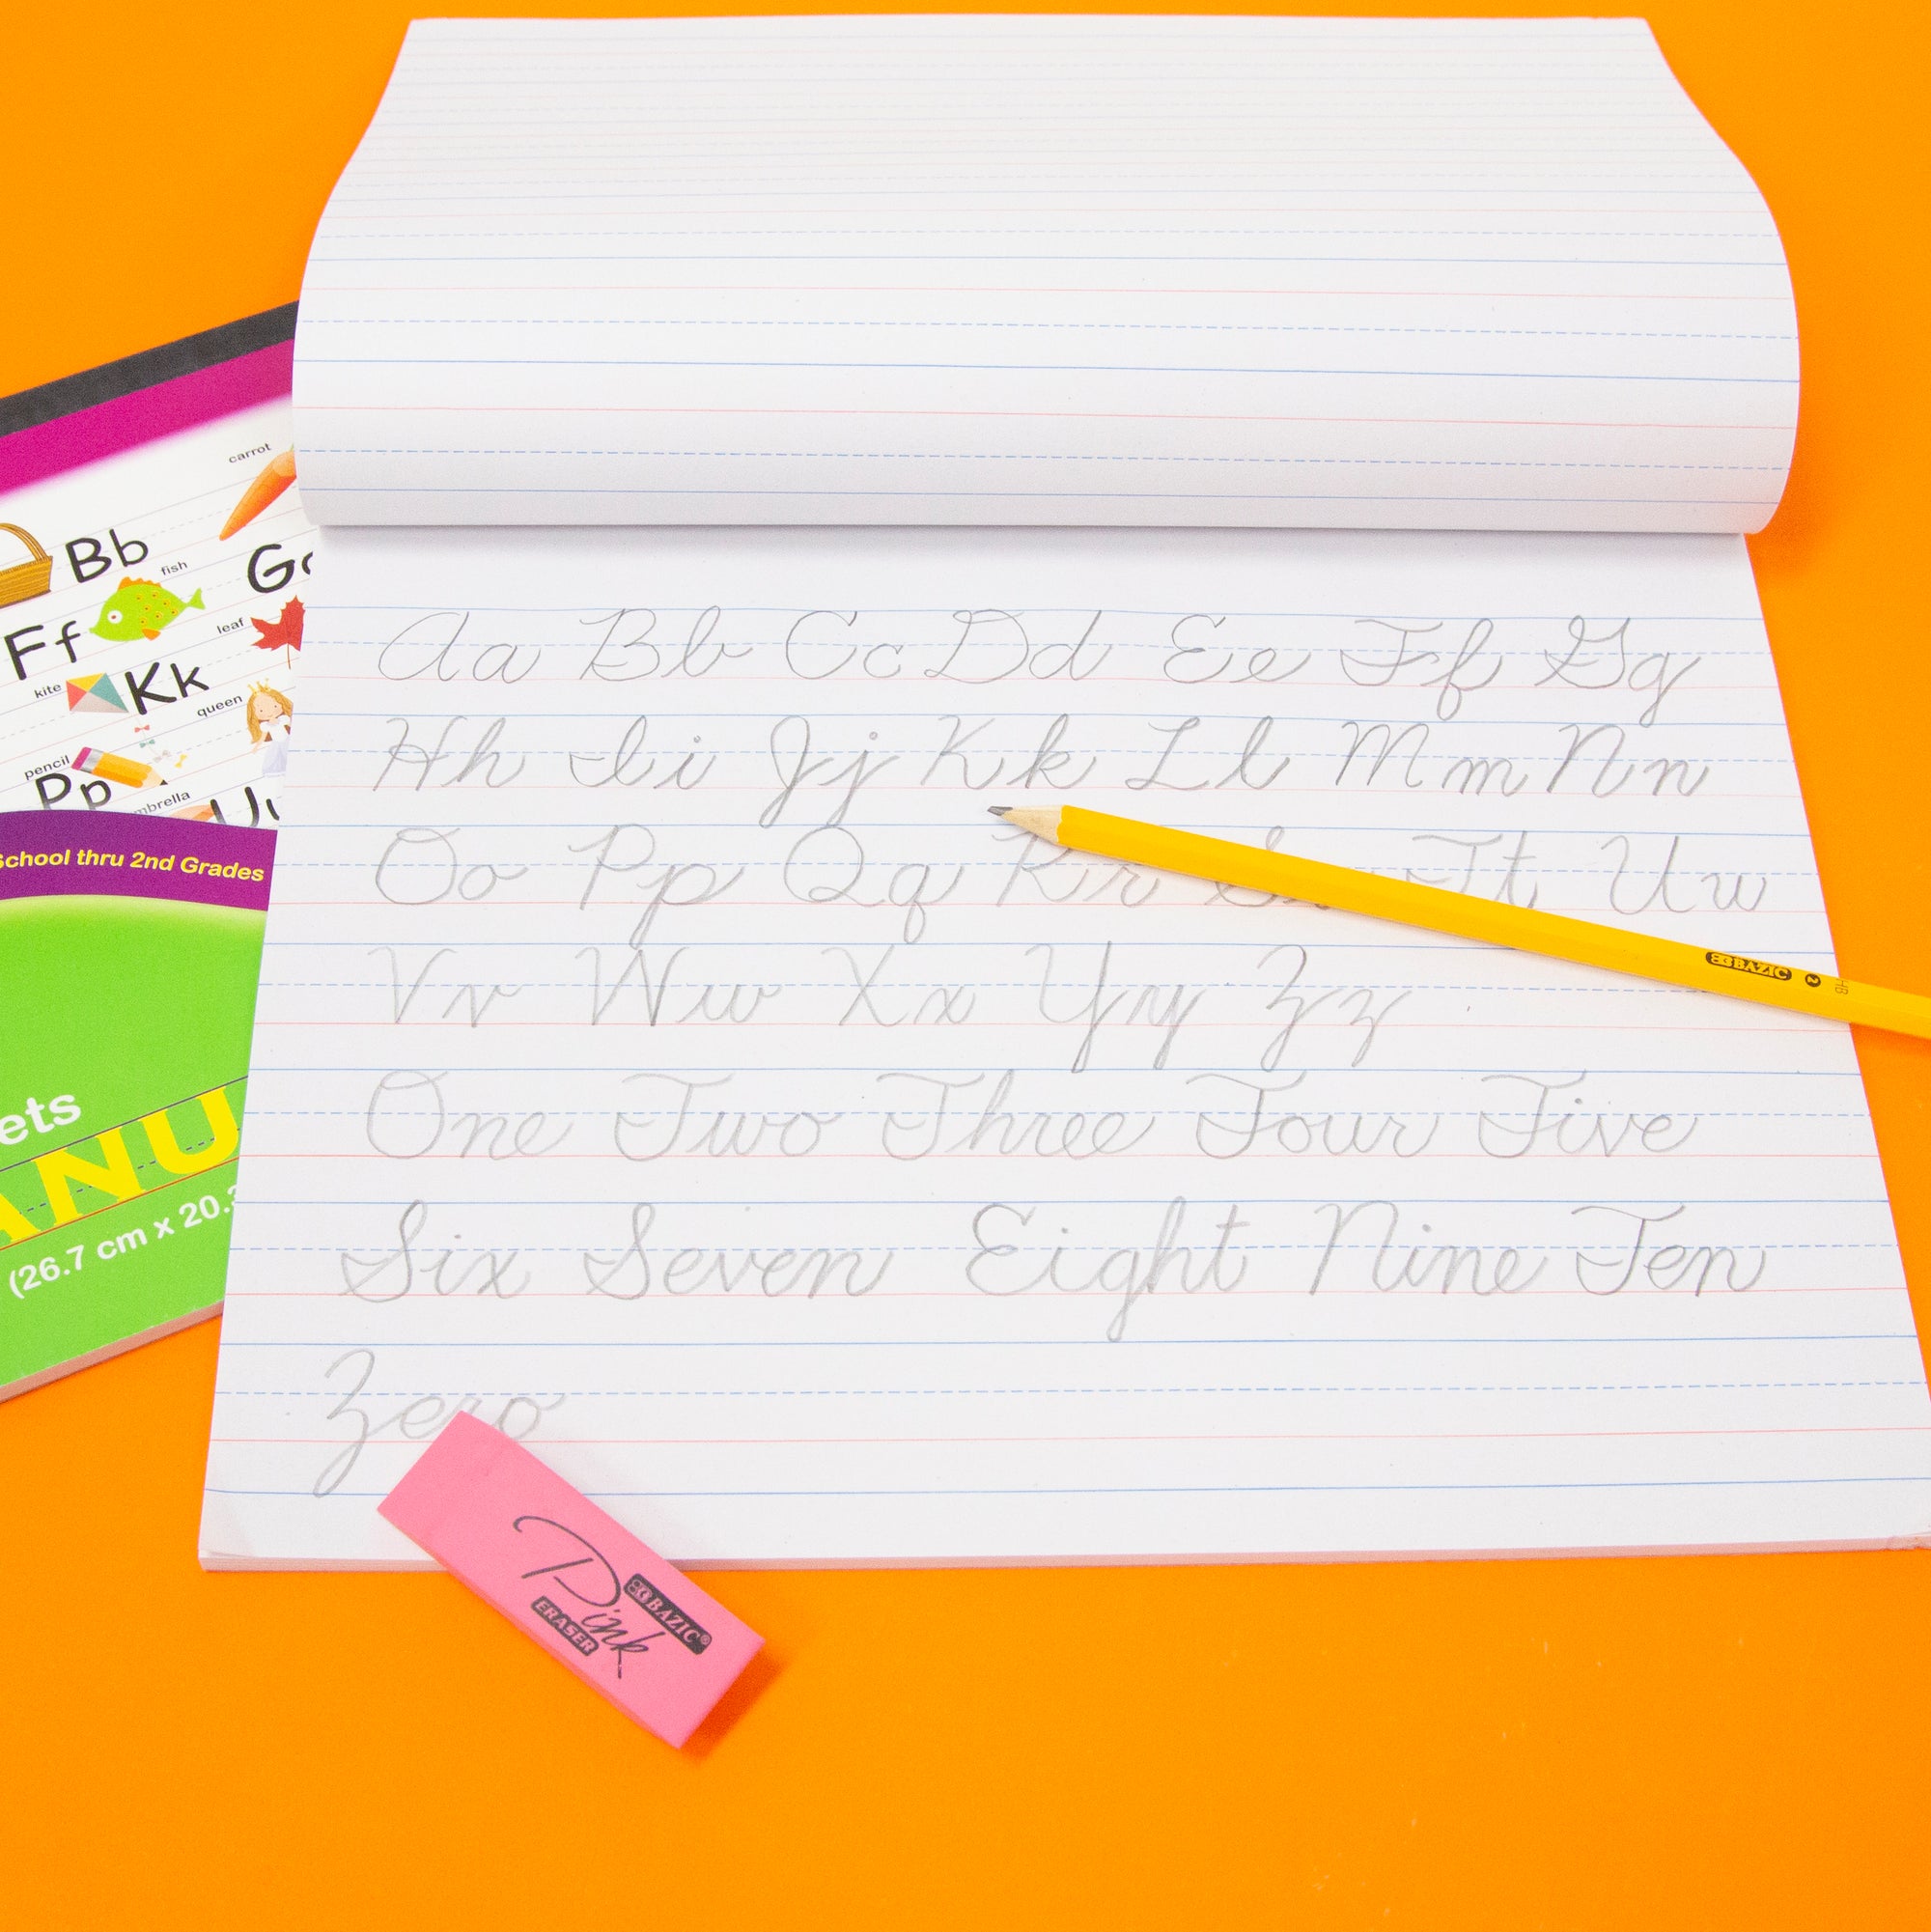 carrot
Bb
fish
G
Ff
leaf
kite
Kk
queen
pencil
Pp
School thru 2nd Grades
(26.7 cm x 20.3
Aa Bb Cc Dd Ee Ff Gg
Hh Ii Jj Kk Ll Mm Nn
Oo Pp Qq Rr Tt Uu
Vv Ww Xx Yy Zz
One Two Three Four Five
Six Seven Eight Nine Ten
Zero
BAZIC 2 HB
BAZIC®
Pink
ERASER